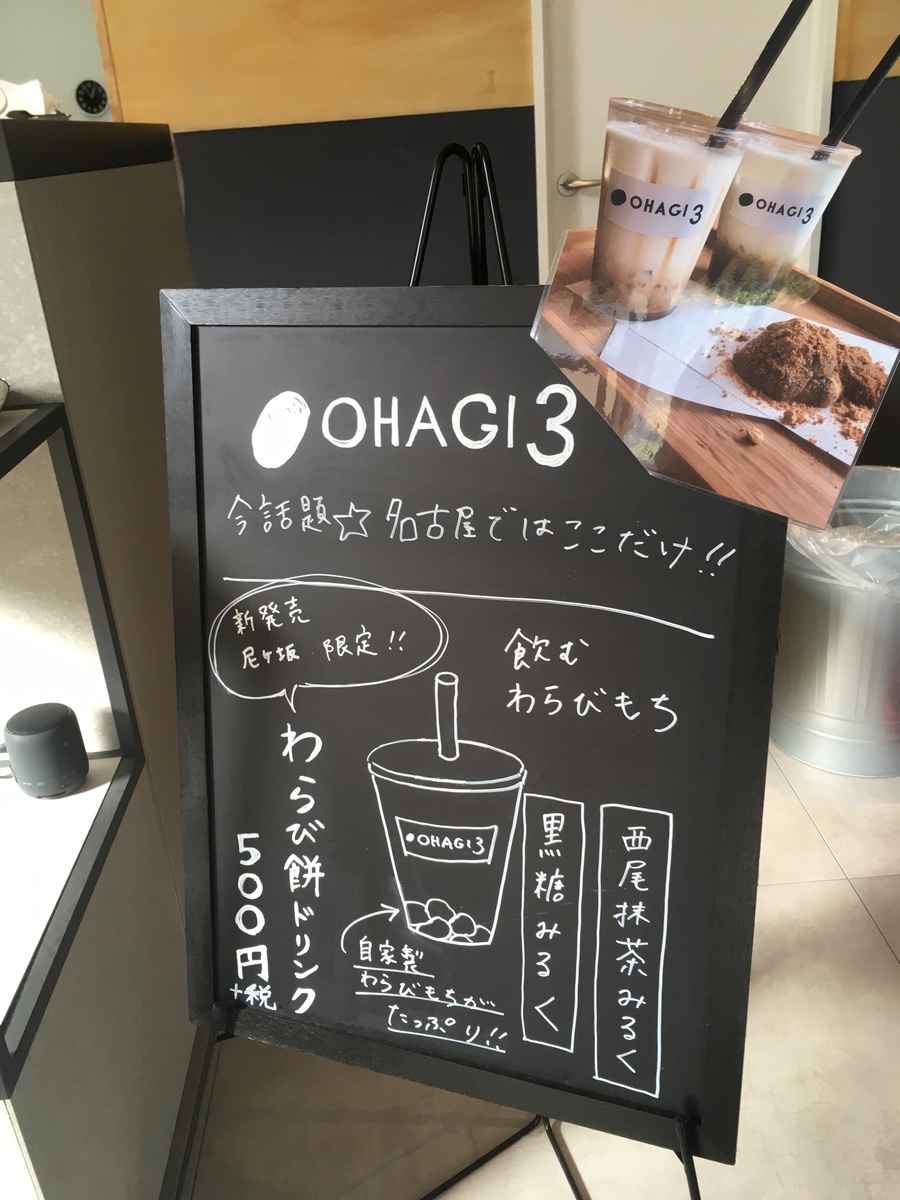 OHAGI3
OHAGI3
OHAGI3
今話題☆名古屋ではここだけ!!
新発売
尼ヶ坂 限定!!
飲む
わらびもち
わらび餅ドリンク
500円
+税
OHAGI3
自家製
わらびもちが
たっぷり!!
黒糖みるく
西尾抹茶みるく